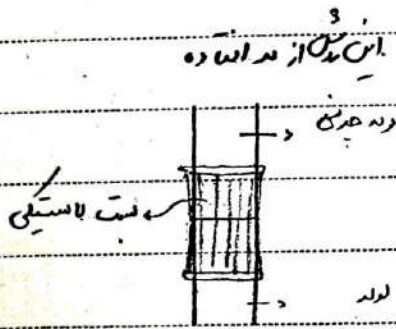 این روش از مد افتاده
لوله چدنی
بست لاستیکی
لوله